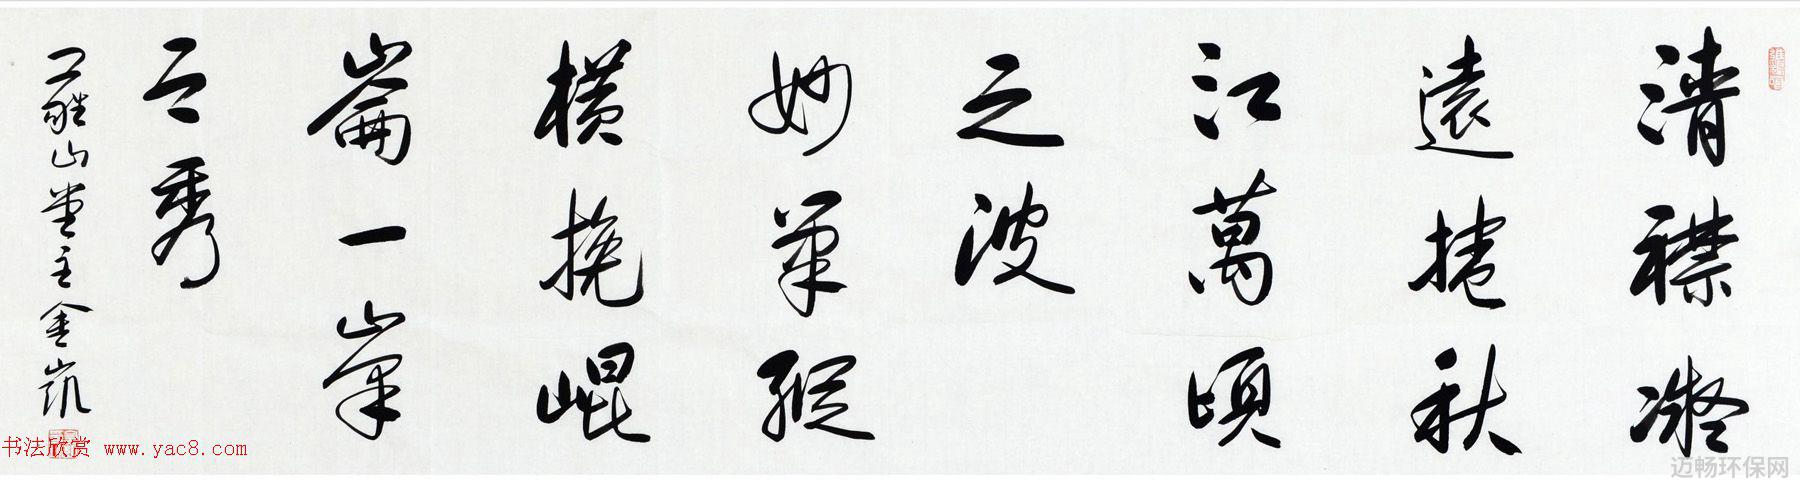 清襟凝
遠捲秋
江萬頃
之波
妙筆縱
橫挽崐
崙一峯
之秀
山堂主金
书法欣赏 www.yac8.com
迈畅环保网